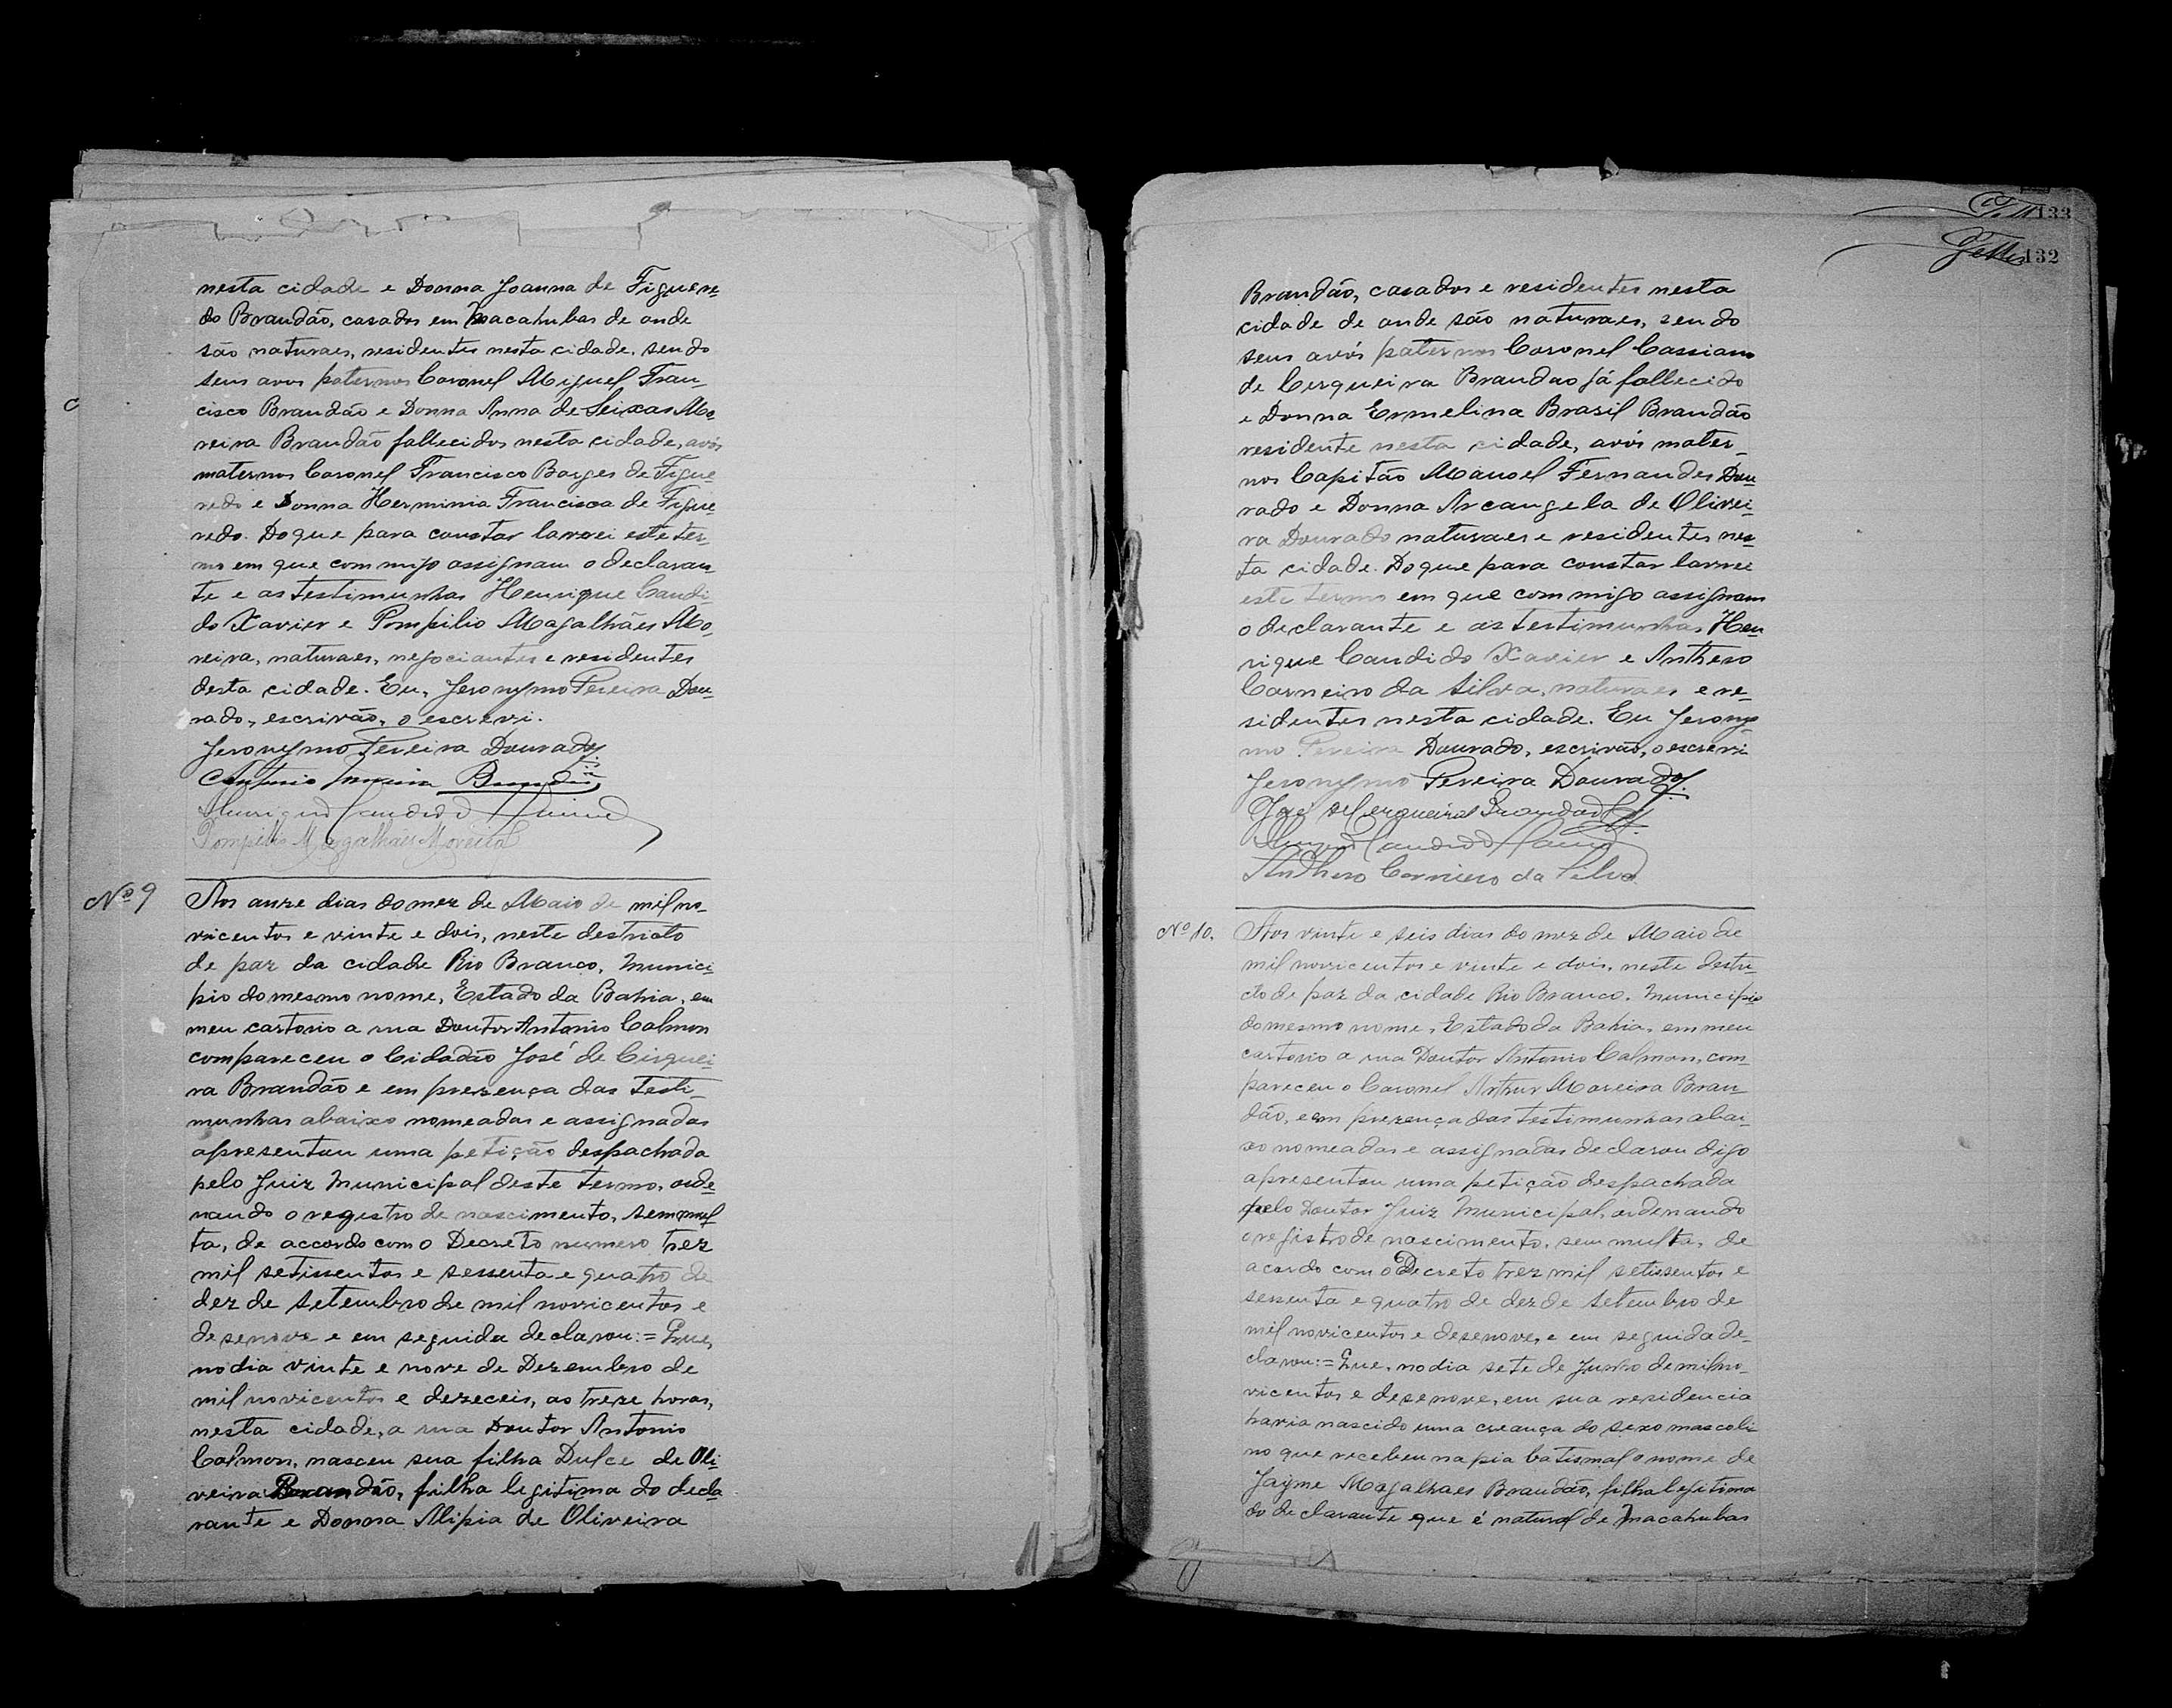 nesta cidade e Donna Joanna de Figuere-
do Brandão, casados em Macahubas de onde
são naturaes, residentes nesta cidade, sendo
seus avos paternos Coronel Miguel Fran-
cisco Brandão e Donna Anna de Seixas Mo-
reira Brandão fallecidos nesta cidade, avós
maternos Coronel Francisco Borges de Figue-
redo e Donna Herminia Francisca de Figue-
redo. Do que para constar lavrei este ter-
mo em que commigo assignam o declaran-
te e as testimunhas Henrique Candi-
do Xavier e Pompilio Magalhães Mo-
reira, naturaes, negociantes e residentes
desta cidade. Eu, Jeronymo Pereira Dou-
rado, escrivão, o escrevi.
Jeronymo Pereira Dourado
Antonio Moreira Brandão
Henrique Candido Xavier
Pompilio Magalhães Moreira
Nº 9
Aos onze dias do mez de Maio de mil no-
vicentos e vinte e dois, neste destricto
de paz da cidade Rio Branco, Munici-
pio do mesmo nome, Estado da Bahia, em
meu cartorio a rua Doutor Antonio Calmon
compareceu o Cidadão José de Cirquei-
ra Brandão e em presença das testi-
munhas abaixo nomeadas e assignadas
apresentou uma petição despachada
pelo Juiz Municipal deste termo, orde-
nando o registro de nascimento, sem mul-
ta, de accordo com o Decreto numero trez
mil setissentos e sessenta e quatro de
dez de Setembro de mil novicentos e
desenove e em seguida declarou:= Que,
no dia vinte e nove de Dezembro de
mil novicentos e dezeceis, as treze horas,
nesta cidade, a rua Doutor Antonio
Calmon, nasceu sua filha Dulce de Oli-
veira Brandão, filha legitima do decla-
rante e Donna Alipia de Oliveira
133
132
Brandão, casados e residentes nesta
cidade de onde são naturaes, sendo
seus avós paternos Coronel Cassiano
de Cerqueira Brandão já fallecido
e Donna Ermelina Brasil Brandão
residente nesta cidade, avós mater-
nos Capitão Manoel Fernandes Dou-
rado e Donna Arcangela de Olivei-
ra Dourado naturaes e residentes nes-
ta cidade. Do que para constar lavrei
este termo em que commigo assignam
o declarante e as testimunhas Hen-
rique Candido Xavier e Anthero
Carneiro da Silva, naturaes e re-
sidentes nesta cidade. Eu Jerony-
mo Pereira Dourado, escrivão, o escrevi
Jeronymo Pereira Dourado
José de Cerqueira Brandão
Henrique Candido Xavier
Anthero Carneiro da Silva
Nº 10.
Aos vinte e seis dias do mez de Maio de
mil novicentos e vinte e dois, neste destri-
cto de paz da cidade Rio Branco, Municipio
do mesmo nome, Estado da Bahia, em meu
cartorio a rua Doutor Antonio Calmon, com-
pareceu o Coronel Arthur Moreira Bran-
dão, e em presença das testimunhas abai-
xo nomeadas e assignadas declarou digo
apresentou uma petição despachada
pelo Doutor Juiz Municipal, ordenando
o registro de nascimento, sem multa, de
acordo com o Decreto trez mil setissentos e
sessenta e quatro de dez de Setembro de
mil novicentos e desenove, e em seguida de-
clarou:= Que, no dia sete de Junho de mil no-
vicentos e desenove, em sua residencia
havia nascido uma creança do sexo mascoli-
no que recebeu na pia batismal o nome de
Jayme Magalhaes Brandão, filho legitimo
do declarante que é natural de Macahubas